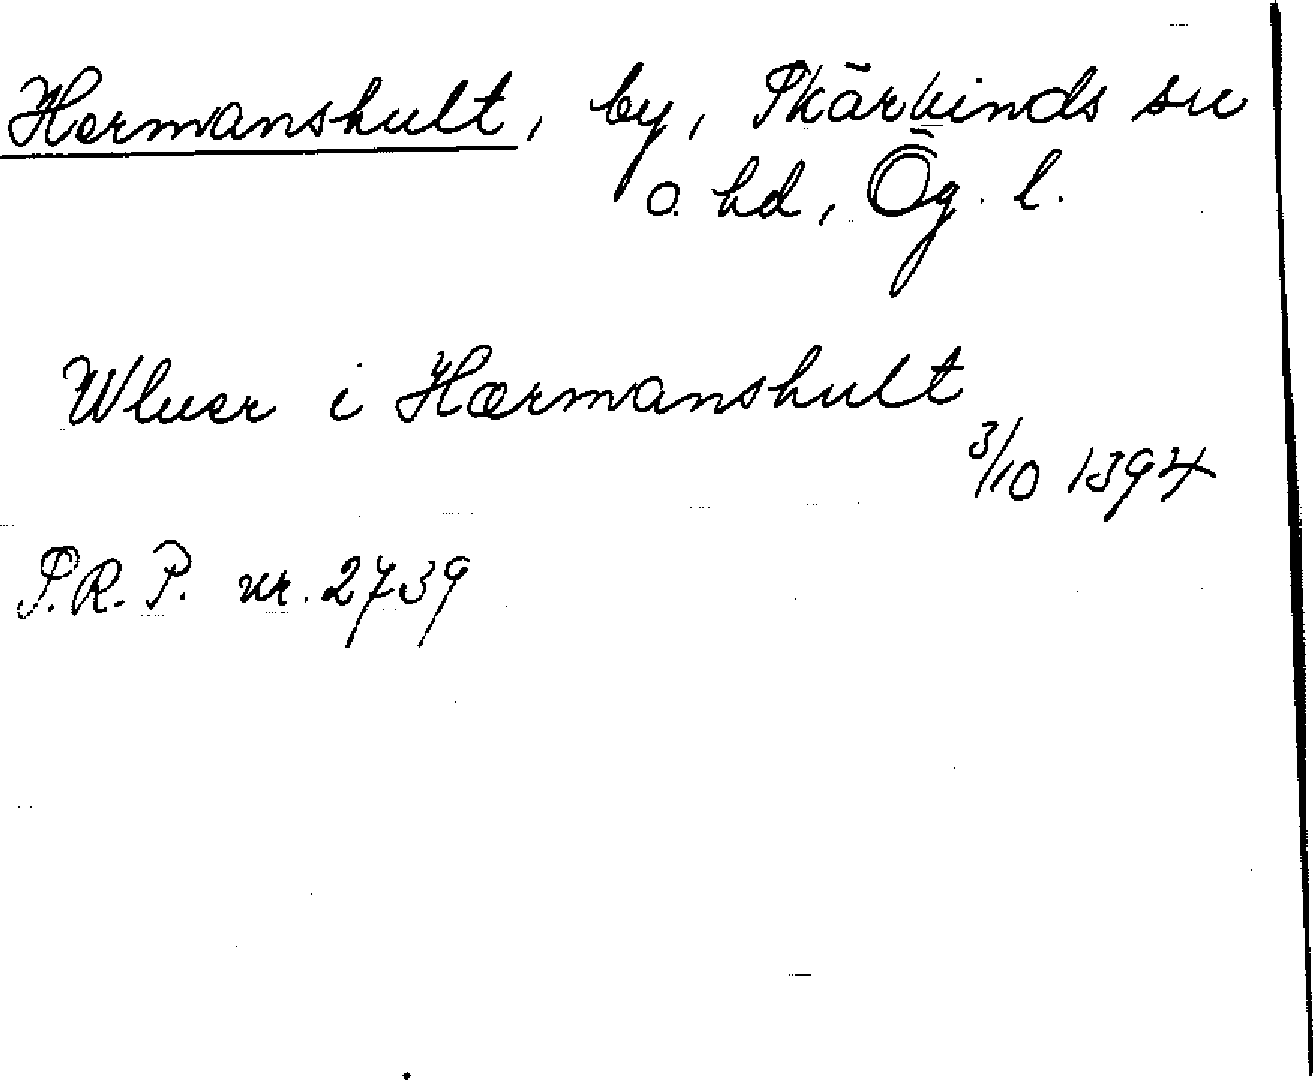 Hermanshult, by, Skärkinds sn
o. hd, Ög. l.
Wluer i Hærmanshult
3/10 1394
P.R.P. nr. 2739